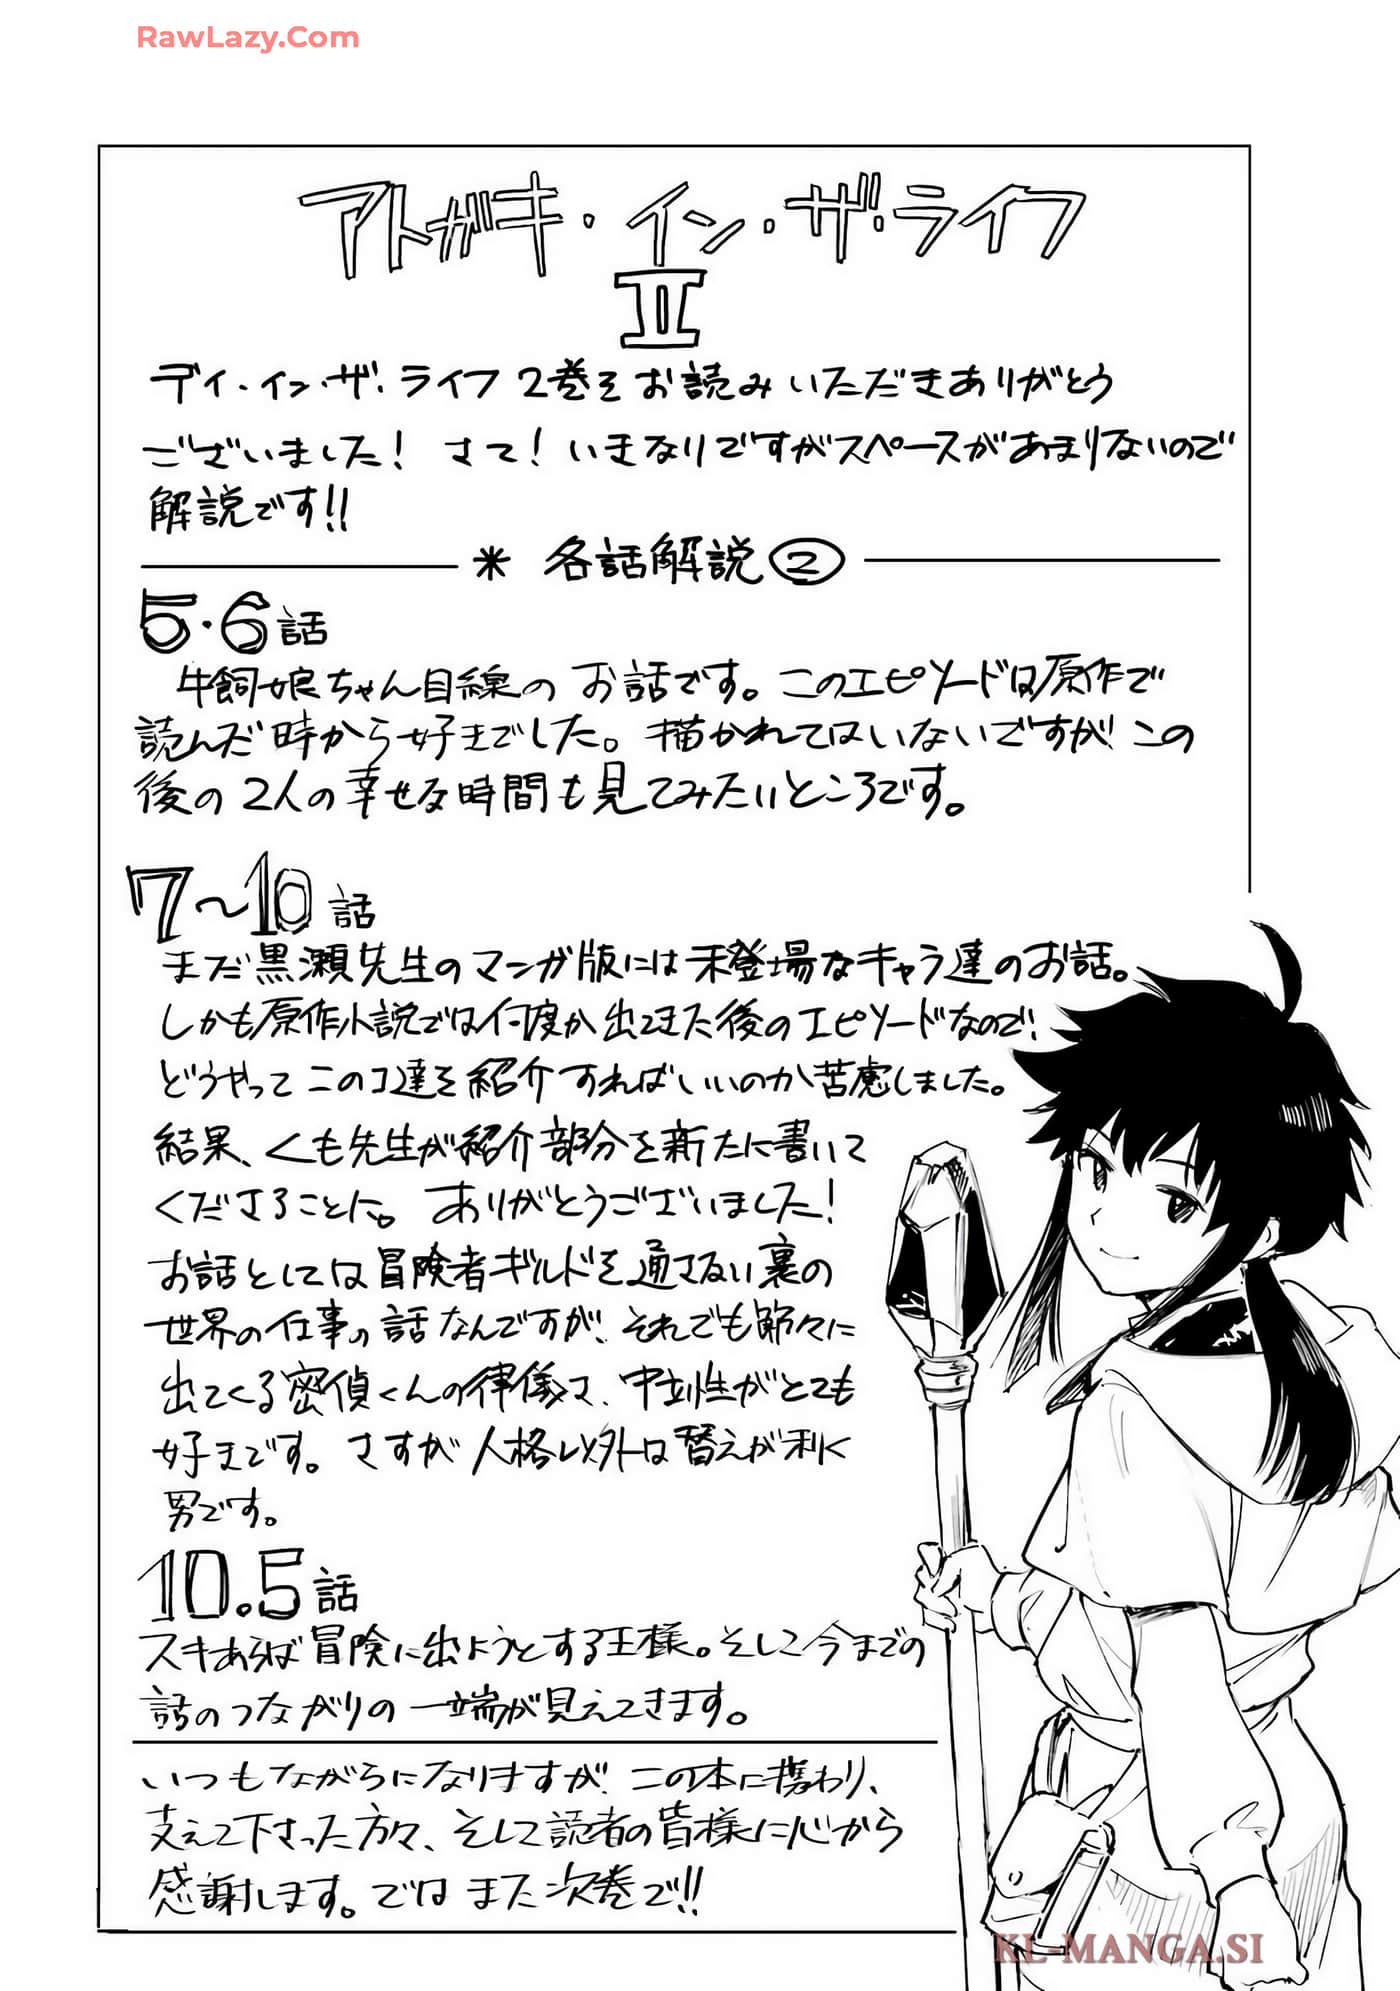 RawLazy.Com
アトガキ・イン・ザ・ライフ
II
デイ・イン・ザ・ライフ 2巻をお読みいただきありがとう
ございました! さて! いきなりですがスペースがあまりないので
解説です!!
* 各話解説②
5・6話
牛飼娘ちゃん目線のお話です。このエピソードは原作で
読んだ時から好きでした。描かれてはいないですが、この
後の2人の幸せな時間も見てみたいところです。
7〜10話
まだ黒瀬先生のマンガ版には未登場なキャラ達のお話。
しかも原作小説では何度か出てきた後のエピソードなので、
どうやってこのコ達を紹介すればいいのか苦慮しました。
結果、くも先生が紹介部分を新たに書いて
くださることに。ありがとうございました!
お話としては冒険者ギルドを通さない裏の
世界の仕事の話なんですが、それでも節々に
出てくる密偵くんの律儀さ、中立性がとても
好きです。さすが人格以外は替えが利く
男です。
10.5話
スキあらば冒険に出ようとする王様。そして今までの
話のつながりの一端が見えてきます。
いつもながらになりますが、この本に携わり、
支えて下さった方々、そして読者の皆様に心から
感謝します。ではまた次巻で!!
KL-MANGA.SI